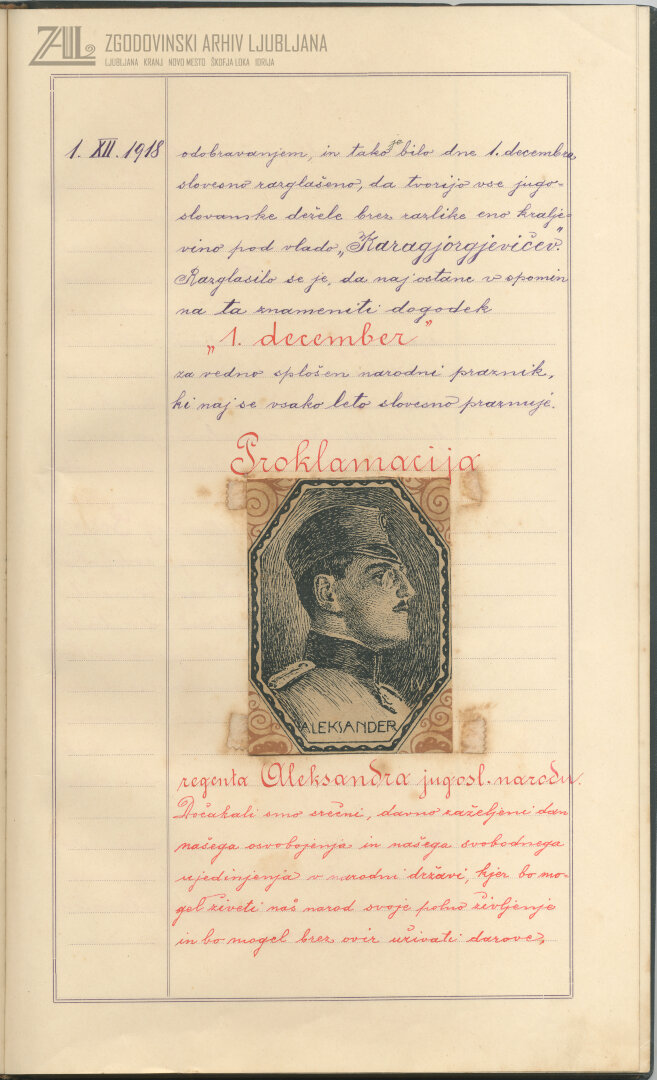 ZAL ZGODOVINSKI ARHIV LJUBLJANA
LJUBLJANA KRANJ NOVO MESTO ŠKOFJA LOKA IDRIJA
1. XII. 1918
odobravanjem, in tako je bilo dne 1. decembra
slovesno razglašeno, da tvorijo vse jugo-
slovanske dežele brez razlike eno kralje-
vino pod vlado „Karagjorgjevičev."
Razglasilo se je, da naj ostane v spomin
na ta znameniti dogodek
„1. december"
za vedno splošen narodni praznik,
ki naj se vsako leto slovesno praznuje.
Proklamacija
ALEKSANDER
regenta Aleksandra jugosl. narodu.
Dočakali smo srečni, davno zaželjeni dan
našega osvobojenja in našega svobodnega
ujedinjenja v narodni državi, kjer bo mo-
gel živeti naš narod svoje polno življenje
in bo mogel brez ovir uživati darove,